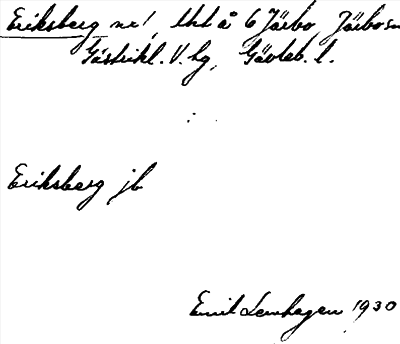 Eriksberg nr 1, tht å 6 Järbo, Järbo sn
Gästrikl. V. hg, Gävleb. l.
Eriksberg jb
Emil Lenhagen 1930